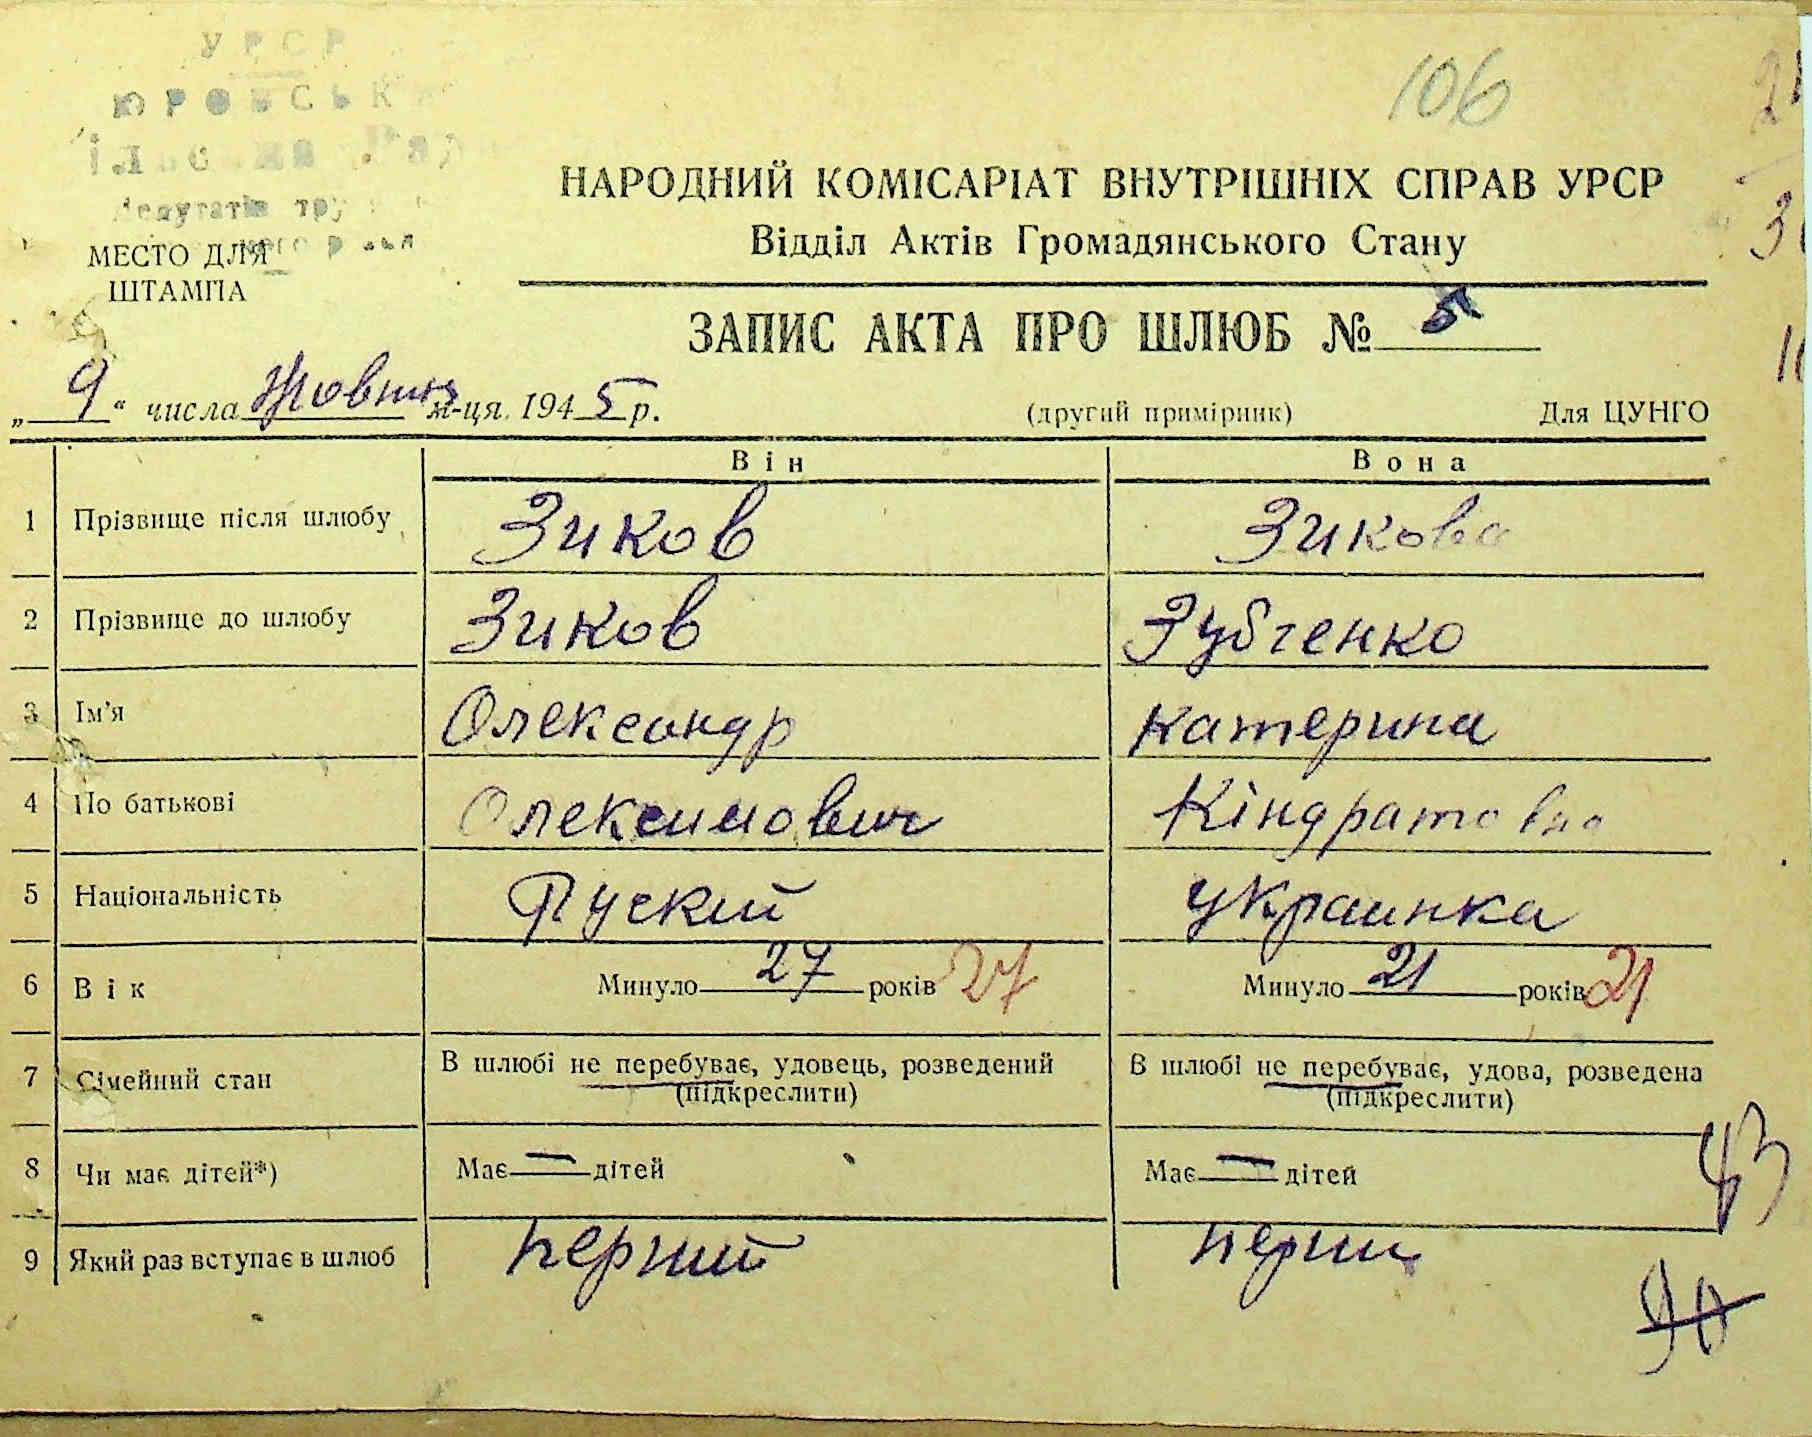 УРСР
депутатів
106
НАРОДНИЙ КОМІСАРІАТ ВНУТРІШНІХ СПРАВ УРСР
Відділ Актів Громадянського Стану
МЕСТО ДЛЯ
ШТАМПА
ЗАПИС АКТА ПРО ШЛЮБ № 5
„ 9 “ числа Жовтня м-ця. 1945 р. (другий примірник) Для ЦУНГО
Він Вона
1 Прізвище після шлюбу Зиков Зикова
2 Прізвище до шлюбу Зиков Зубченко
3 Ім'я Олександр Катерина
4 По батькові Олексимович Кіндратовна
5 Національність Руский украинка
6 Вік Минуло 27 років 27 Минуло 21 років 21
7 Сімейний стан В шлюбі не перебуває, удовець, розведений В шлюбі не перебуває, удова, розведена
(підкреслити) (підкреслити)
8 Чи має дітей*) Має — дітей Має — дітей
43
9 Який раз вступає в шлюб перший перши